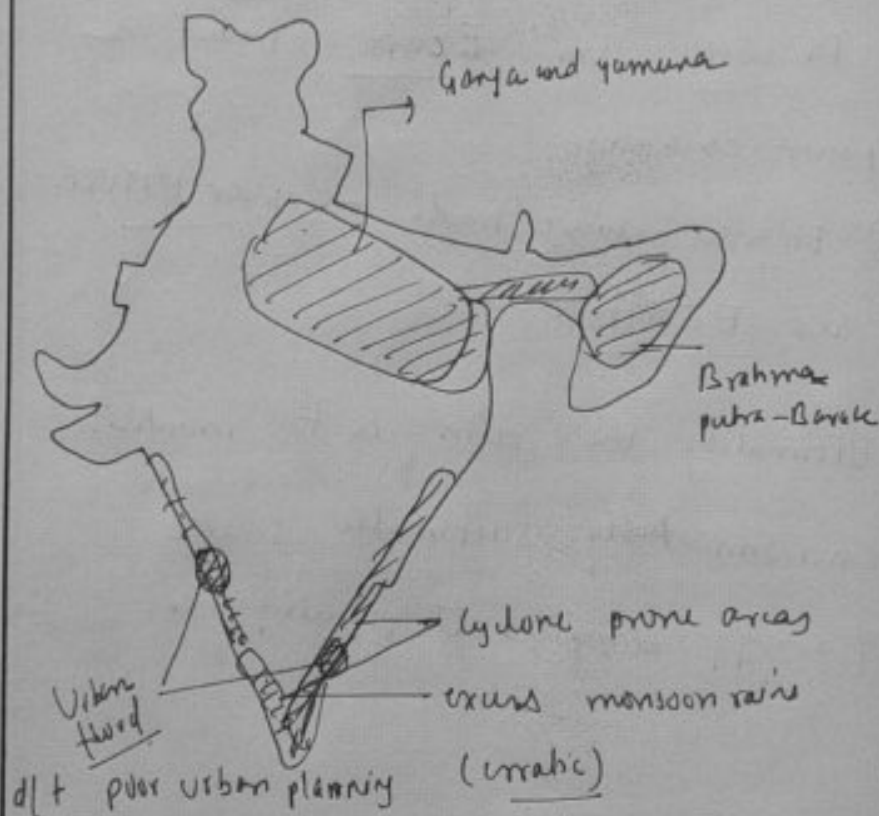 Ganga and yamuna
Brahma
putra-Barak
Cyclone prone areas
excess monsoon rains
(erratic)
Urban
flood
d/t poor urban planning